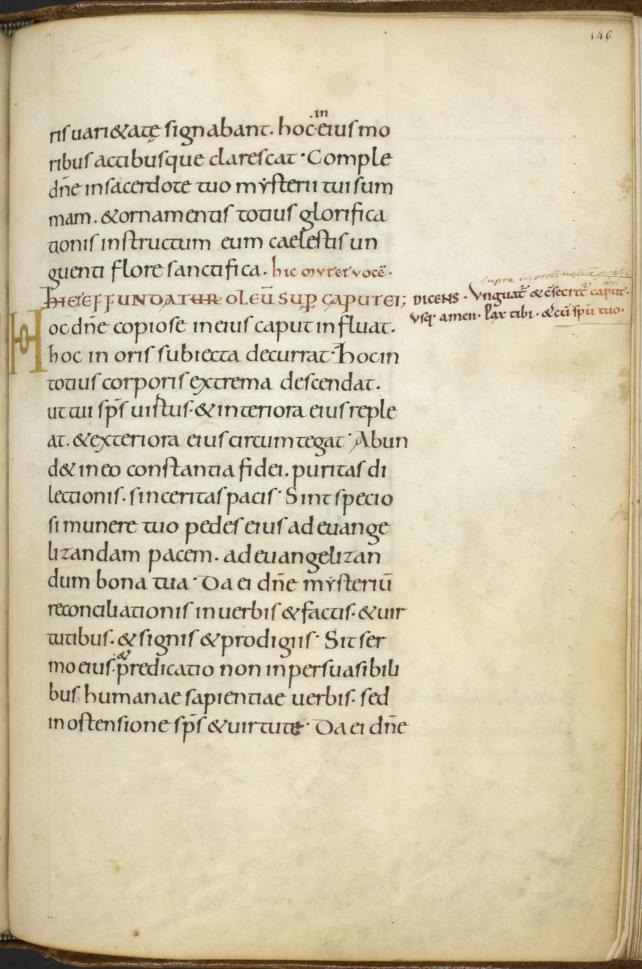 146
ris uari&atę signabant. hoc in eius mo
ribus actibusque clarescat · Comple
dn̄e in sacerdote tuo mẏsterii tui sum
mam. & ornamentis totius glorifica
tionis instructum eum caelestis un
guenti flore sanctifica. hic mutet vocē.
HIC EFFUNDATUR OLEŪ SUP CAPUT EI; DICENS. Vnguat̄ & c̄secret̄ caput.
usq. amen. Pax tibi. & cū sp̄u tuo.
Hoc dn̄e copiose in eius caput influat.
hoc in oris subiecta decurrat · Hoc in
totius corporis extrema descendat.
ut tui sp̄s uirtus · & interiora eius reple
at. & exteriora eius circumtegat · Abun
d& in eo constantia fidei. puritas di
lectionis. sinceritas pacis · Sint specio
si munere tuo pedes eius ad euange
lizandam pacem. ad euangelizan
dum bona tua · Da ei dn̄e mẏsteriū
reconciliationis in uerbis & factis. & uir
tutibus. & signis & prodigiis · Sit ser
mo eius. & p̄redicatio non in persuasibili
bus humanae sapientiae uerbis. sed
in ostensione sp̄s & uirtutis · Da ei dn̄e